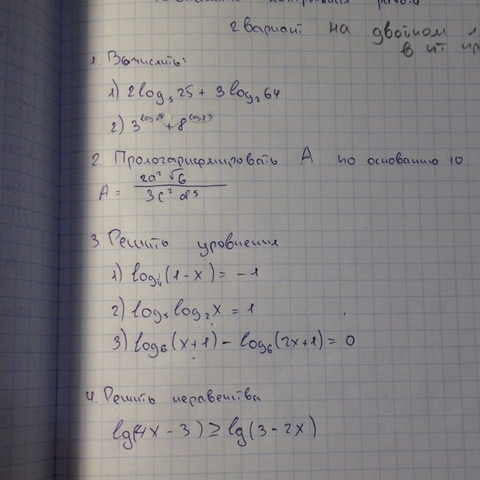 2 вариант на двойном
в
1. Вычислить:
1) 2log₅25 + 3log₂64
2) 3 + 8
2. Прологарифмировать A по основанию 10
A = 2a² √6 / 3c² d⁵
3. Решить уровнения
1) log₄(1-x) = -1
2) log₅log₂x = 1
3) log₆(x+1) - log₆(2x+1) = 0
4. Решить неравенства
lg(4x-3) ≥ lg(3-2x)